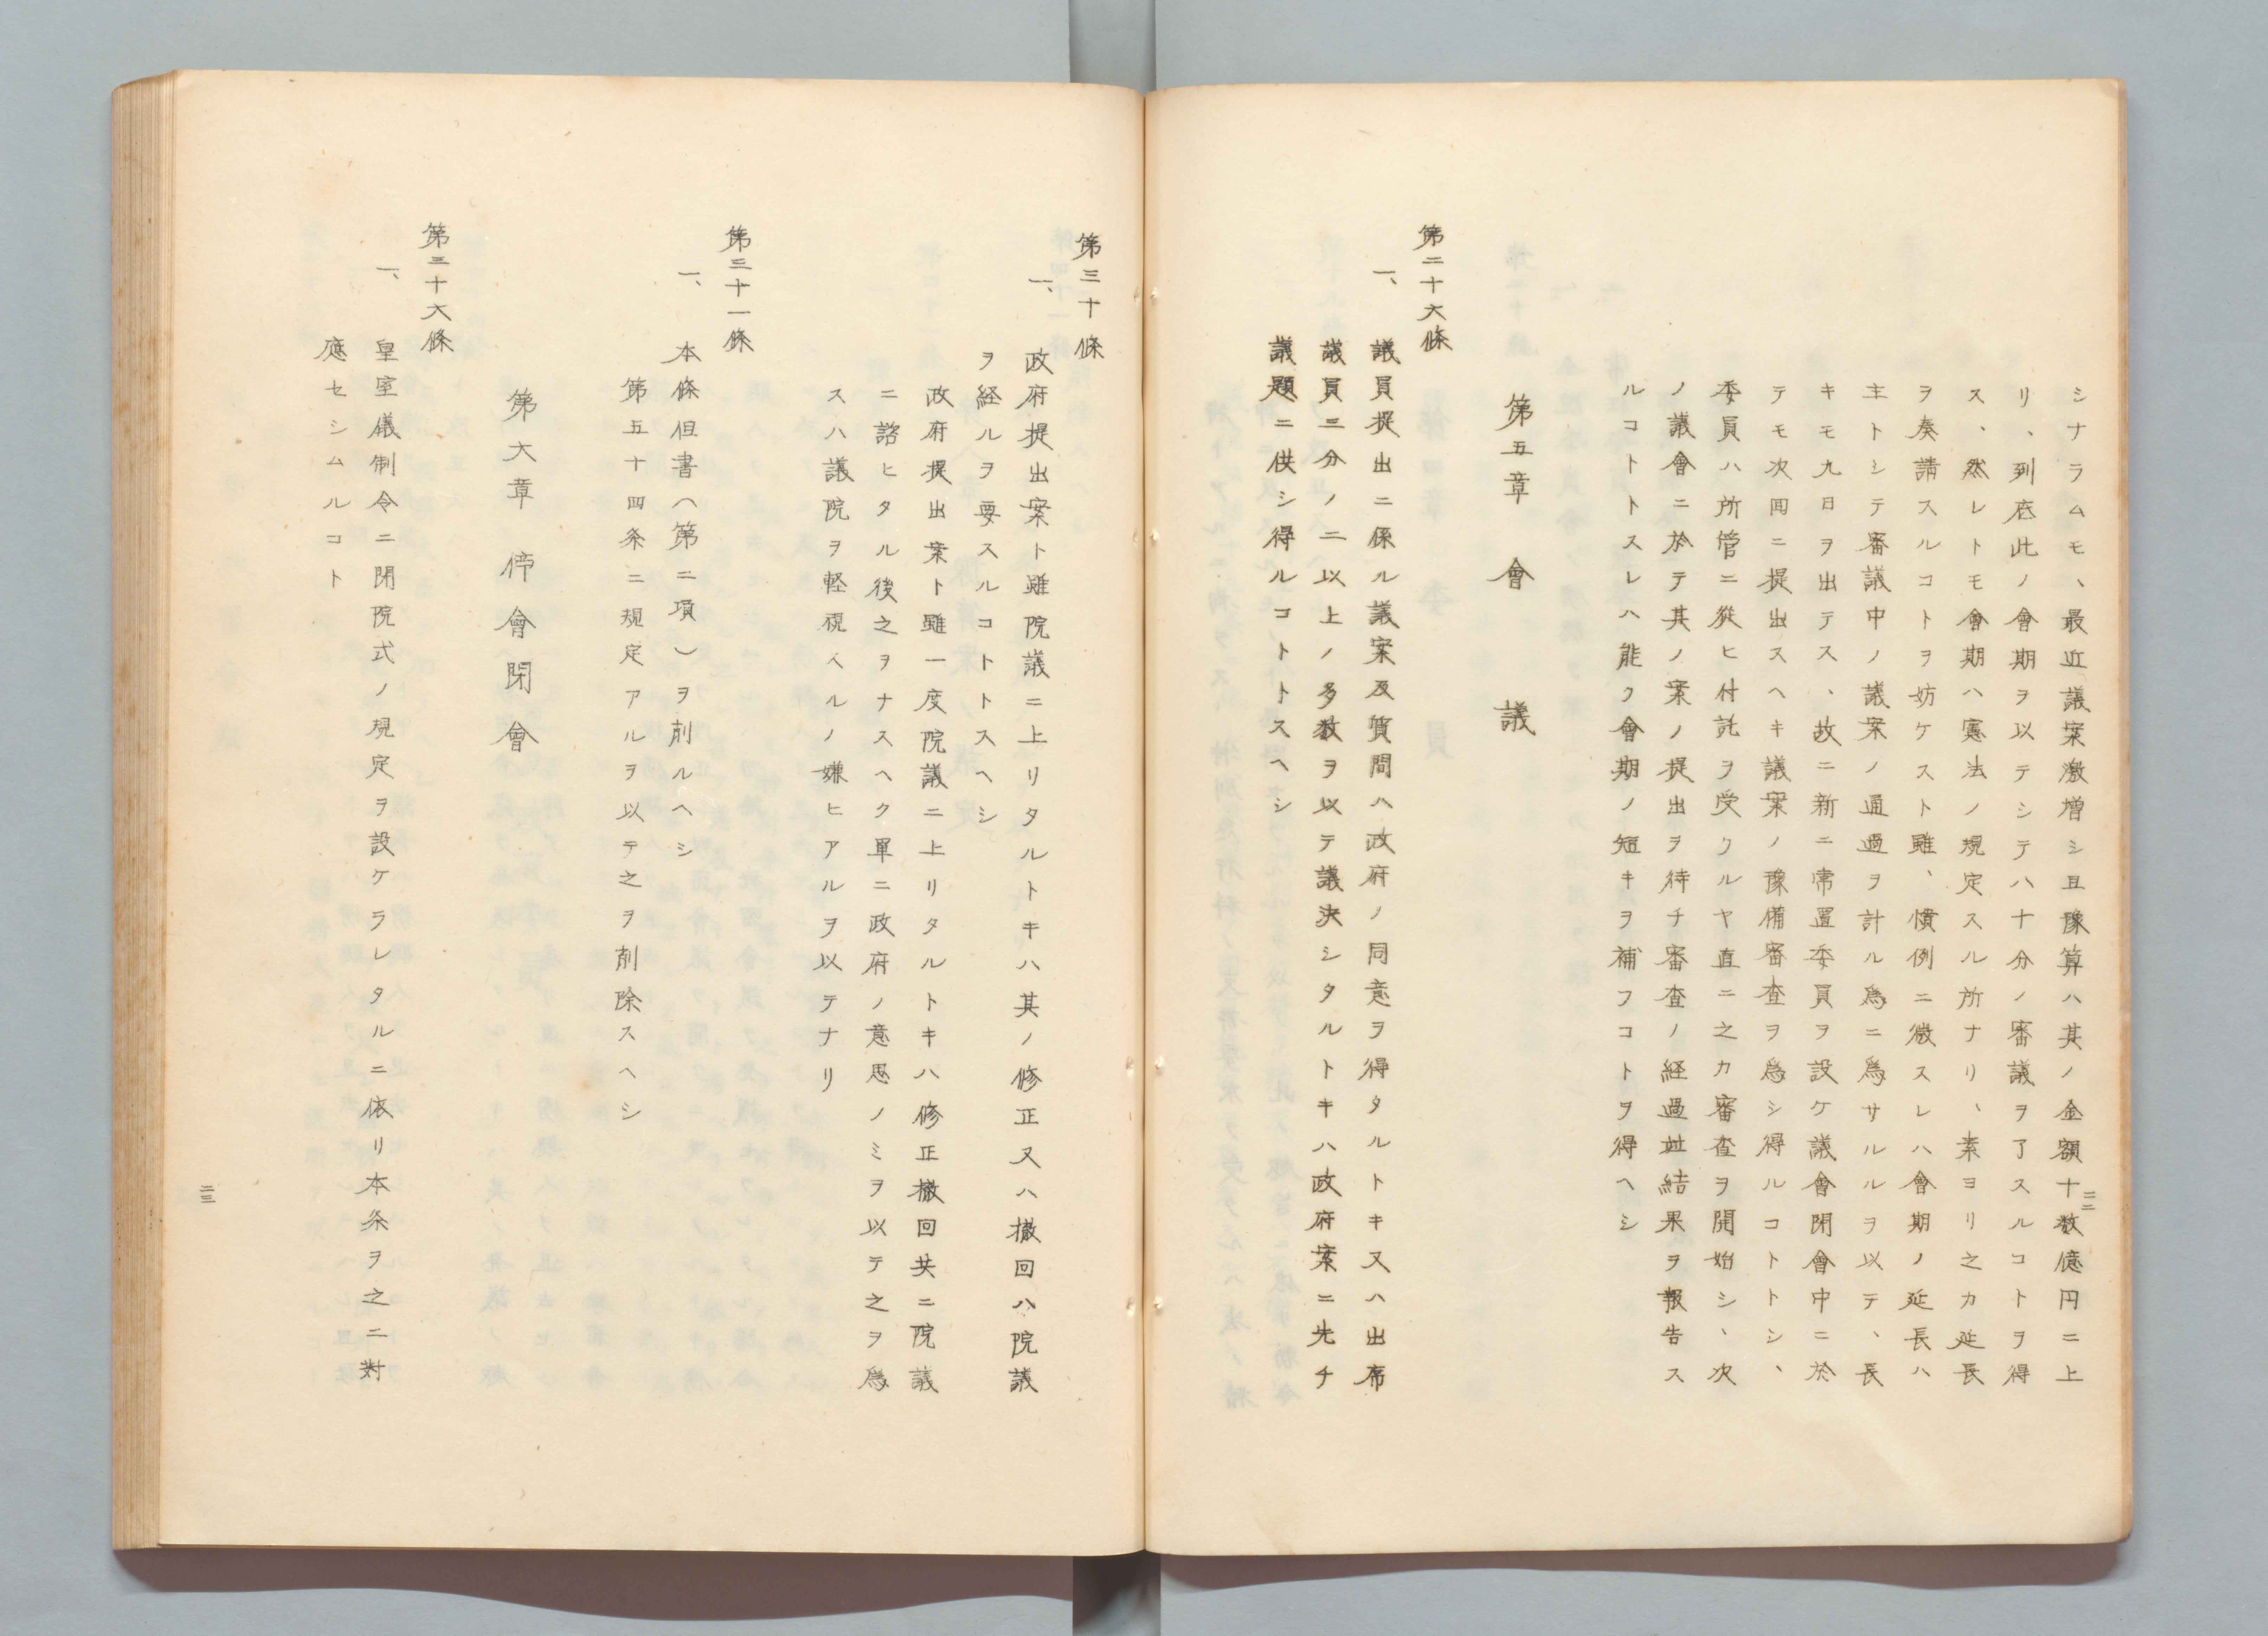 シナラムモ、最近議案激増シ且豫算ハ其ノ金額十数億円ニ上
リ、到底此ノ會期ヲ以テシテハ十分ノ審議ヲ了スルコトヲ得
ス、然レトモ會期ハ憲法ノ規定スル所ナリ、素ヨリ之カ延長
ヲ奏請スルコトヲ妨ケスト雖、慣例ニ徴スレハ會期ノ延長ハ
主トシテ審議中ノ議案ノ通過ヲ計ル爲ニ爲サルルヲ以テ、長
キモ九日ヲ出テス、故ニ新ニ常置委員ヲ設ケ議會閉會中ニ於
テモ次囘ニ提出スヘキ議案ノ豫備審査ヲ爲シ得ルコトトシ、
委員ハ所管ニ從ヒ付託ヲ受クルヤ直ニ之カ審査ヲ開始シ、次
ノ議會ニ於テ其ノ案ノ提出ヲ待チ審査ノ経過竝結果ヲ報告ス
ルコトトスレハ能ク會期ノ短キヲ補フコトヲ得ヘシ
第五章 會議
第二十六條
一、議員提出ニ係ル議案及質問ハ政府ノ同意ヲ得タルトキ又ハ出席
議員三分ノ二以上ノ多数ヲ以テ議決シタルトキハ政府案ニ先チ
議題ニ供シ得ルコトトスヘシ
二二
第三十條
一、政府提出案ト雖院議ニ上リタルトキハ其ノ修正又ハ撤回ハ院議
ヲ経ルヲ要スルコトトスヘシ
政府提出案ト雖一度院議ニ上リタルトキハ修正撤回共ニ院議
ニ諮ヒタル後之ヲナスヘク單ニ政府ノ意思ノミヲ以テ之ヲ爲
スハ議院ヲ軽視スルノ嫌ヒアルヲ以テナリ
第三十一條
一、本條但書(第二項)ヲ削ルヘシ
第五十四条ニ規定アルヲ以テ之ヲ削除スヘシ
第六章 停會閉會
第三十六條
一、皇室儀制令ニ閉院式ノ規定ヲ設ケラレタルニ依リ本条ヲ之ニ對
應セシムルコト
二三